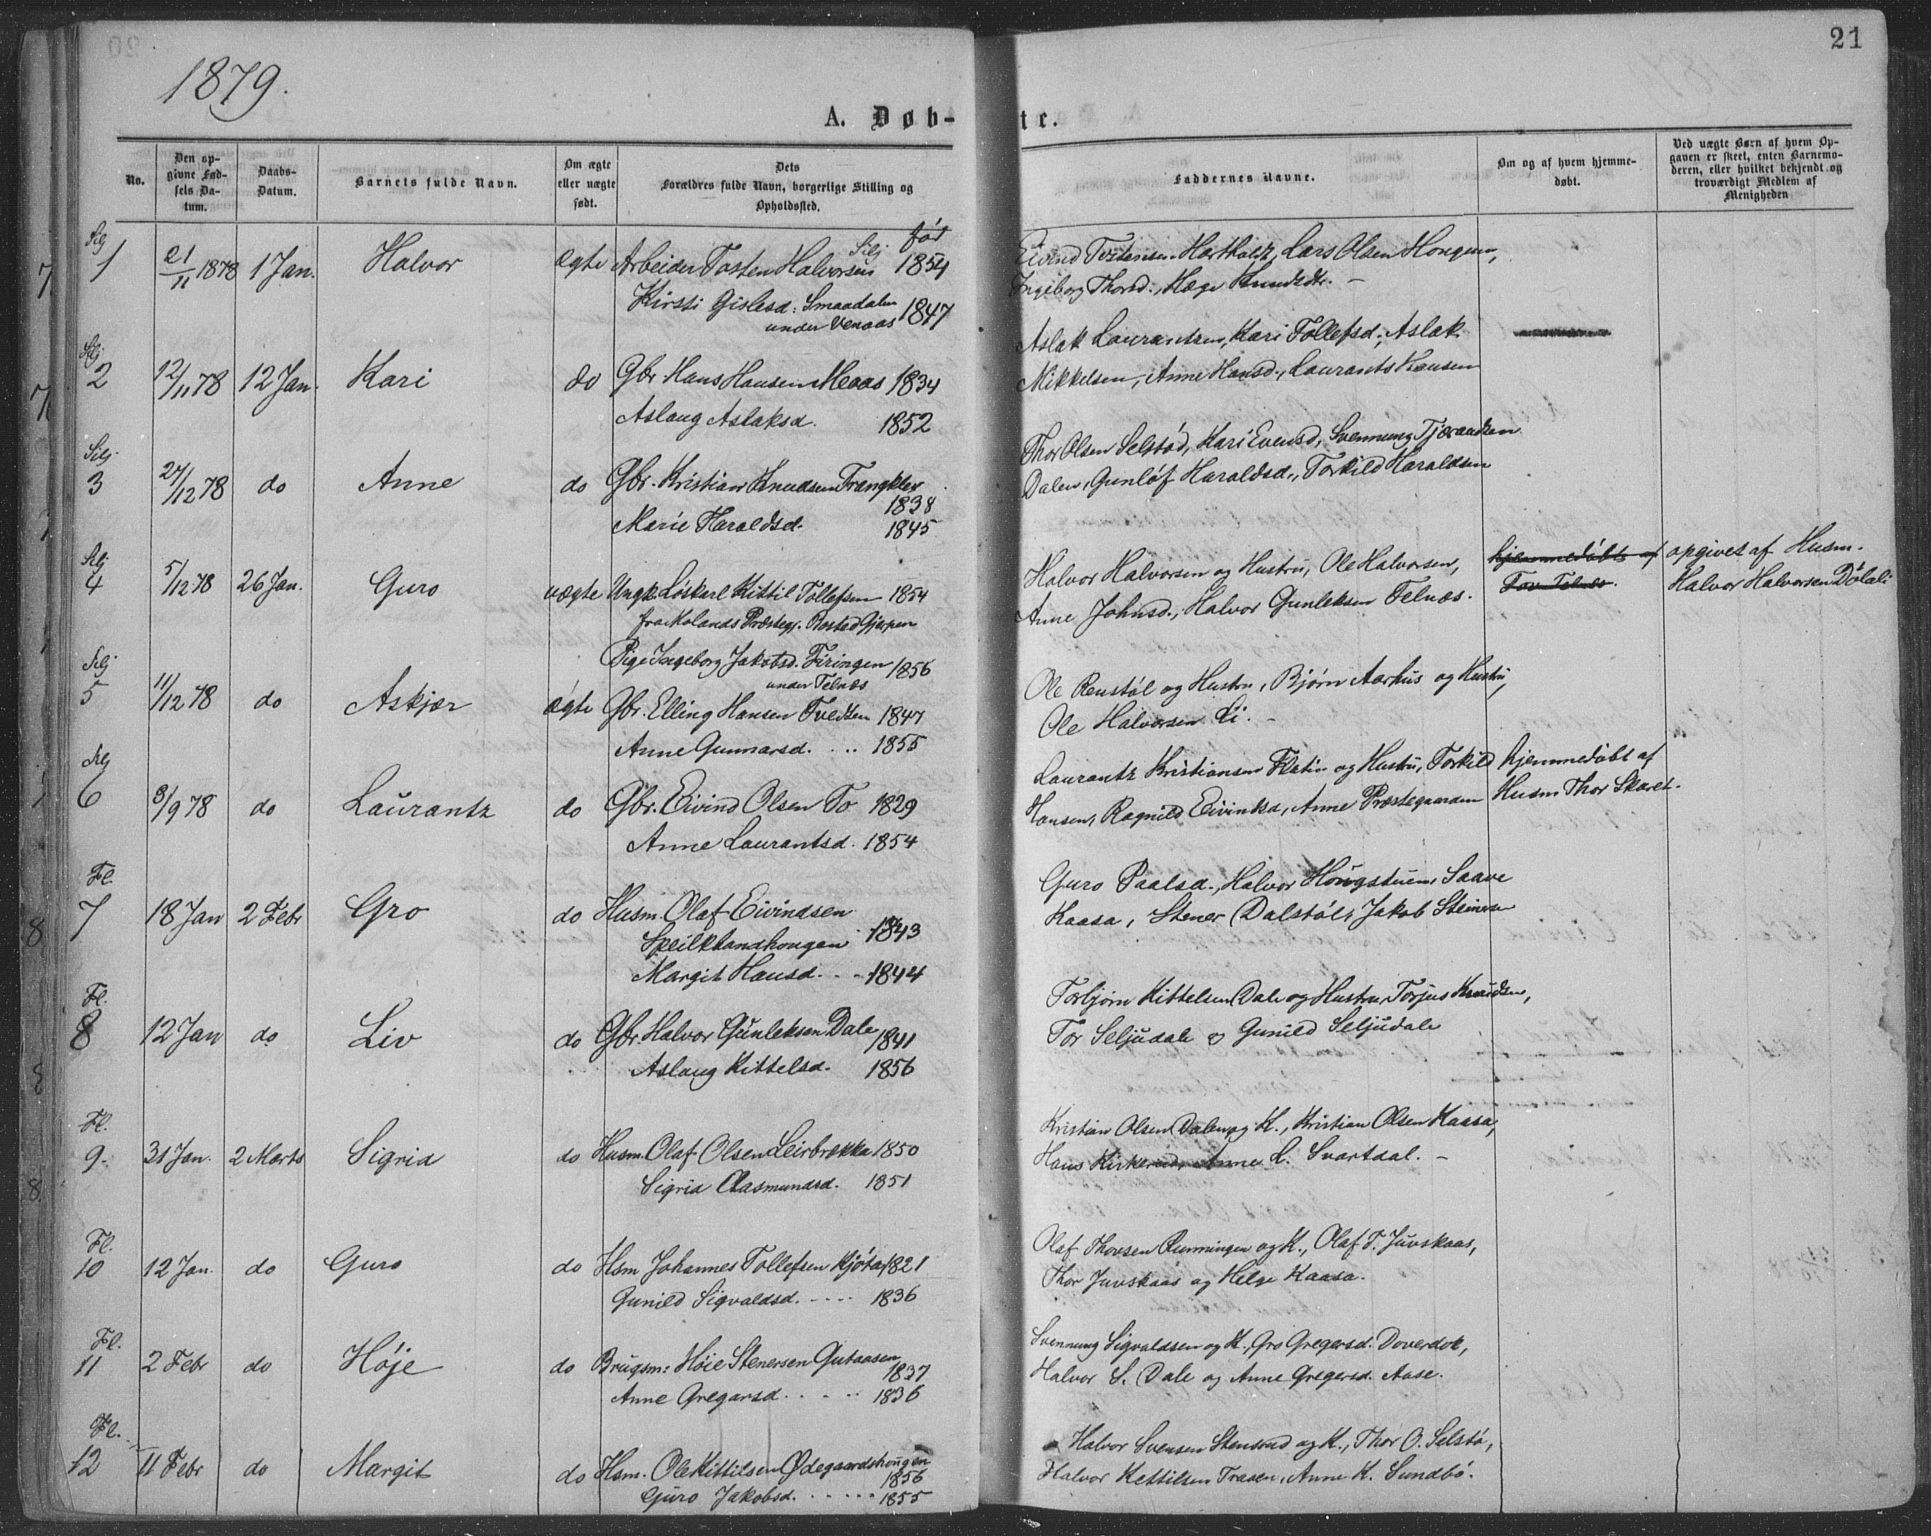 1879.
21
A. Døb-
te.
No.
Den op-
givne Fød-
sels Da-
tum.
Daabs-
Datum.
Barnets fulde Navn.
Om ægte
eller uægte
født.
Dets
Forældres fulde Navn, borgerlige Stilling og
Opholdssted.
Faddernes Navne.
Om og af hvem hjemme-
døbt.
Ved uægte Børn af hvem Op-
gaven er skeet, enten Barnemo-
deren, eller hvilket bekjendt og
troværdigt Medlem af
Menigheden
Selj
1 21/11 1878 1 Jan. Halvor ægte Arbeider Tosten Halvorsen Selj 1854
Kirsti Gislesd: Smaadalen 1847
under Venaas
Eivind Tostensen Hartholt, Lars Olsen Hougen,
Ingeborg Thorsd., Hæge Knudsdtr. –
Selj
2 12/11 78 12 Jan. Kari do Gbr. Hans Hansen Meaas 1834
Aslaug Aslaksd. 1852
Aslak Laurantzen, Kari Tollefsd., Aslak
Mikkelsen, Anne Hansd., Laurants Hansen
Selj.
3 27/12 78 do Anne do Gbr. Kristian Knudsen Trængklev
1838
Marie Haraldsd. 1845
Thor Olsen Selstød, Kari Evensd, Svennung Tjærandsen
Dalen, Gunløf Haraldsd., Torkild Haraldsen
Selj
4 5/12 78 26 Jan. Guro uægte Ungk. Løskarl Kittil Tollefsen 1854
fra Molands Præstegj. Bosted Gjerpen
Pige Ingeborg Jakobsd. Firingen 1856
under Telnæs
Halvor Halvorsen og Hustru, Ole Halvorsen,
Anne Johnsd., Halvor Gunleksen Telnæs.
hjemmedøbt af
Tov Telnæs.
opgivet af Husm.
Halvor Halvorsen Dølali
Selj
5 11/12 78 do Askjær ægte Gbr. Elling Hansen Tvedten 1847
Anne Gunnarsd. . . . 1855
Ole Renstøl og Hustru, Bjørn Aarhus og Hustru,
Ole Halvorsen Li. –
Selj
6 8/9 78 do Laurantz do Gbr. Eivind Olsen To 1829
Anne Laurantsd. 1854
Laurantz Kristiansen Flatin og Hustru, Torkild
Hansen, Ragnild Eivindsd, Anne Præstegaarden
hjemmedøbt af
Husm Thor Skaret.
Fl.
7 18 Jan 2 Febr Gro do Husm. Olaf Eivindsen
1843
Margit Hansd. . . 1844
Guro Paalsd., Halvor Hougstuen, Saave
Kaasa, Stener Dalstøl, Jakob Steinersen
Fl.
8 12 Jan do Liv do Gbr. Halvor Gunleksen Dale 1841
Aslaug Kittelsd. 1856
Torbjørn Kittelsen Dale og Hustru, Torjus Knudsen,
Tor Seljudale & Gunild Seljudale
Fl.
9. 31 Jan. 2 Marts Sigrid do Husm. Olaf Olsen Leirbrækka 1850
Sigrid Aasmundsd. 1851
Kristian Olsen Dalen og K., Kristian Olsen Kaasa,
Hans Kirkerud, Anne L. Svartdal. –
Fl.
10 12 Jan. do Guro do Hsm Johannes Tollefsen Kjøta 1821
Gunild Sigvaldsd. . . . . 1836
Olaf Thovsen Runningen og K., Olaf T. Juvskaas,
Thor Juvskaas og Helge Kaasa.
Fl.
11 2 Febr do Høje do Brugsm: Høie Stenersen Gutaasen
1837
Anne Gregarsd. . . . . 1836
Svennung Sigvaldsen og K., Gro Gregersd. Doverdok,
Halvor S. Dale og Anne Gregersd. Aase.
Fl.
12 11 Febr do Margit do Hsm. Ole Kittilsen Ødegaardshougen
1856
Guro Jakobsd. . . . . . 1855
Halvor Svensen Stensrud og K., Thor O. Selstø,
Halvor Kettilsen Traaen, Anne K. Sundbø.